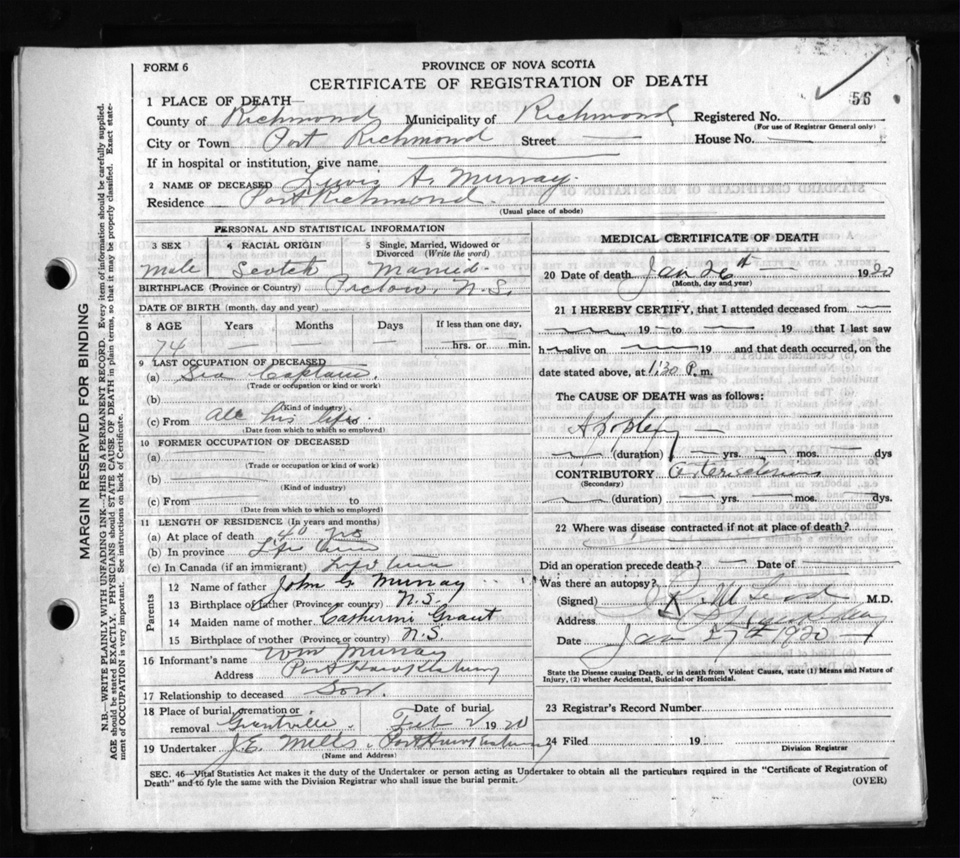 FORM 6
PROVINCE OF NOVA SCOTIA
CERTIFICATE OF REGISTRATION OF DEATH
56
1 PLACE OF DEATH—
County of Richmond Municipality of Richmond Registered No.
(For use of Registrar General only)
City or Town Port Richmond Street — House No. —
If in hospital or institution, give name
2 NAME OF DECEASED Lewis A. Murray.
Residence Port Richmond.
(Usual place of abode)
PERSONAL AND STATISTICAL INFORMATION
3 SEX 4 RACIAL ORIGIN 5 Single, Married, Widowed or Divorced (Write the word)
Male Scotch Married.
BIRTHPLACE (Province or Country) Pictou, N.S.
DATE OF BIRTH (month, day and year)
8 AGE Years Months Days If less than one day,
74 — — — hrs. or min.
9 LAST OCCUPATION OF DECEASED
(a) Sea Captain.
(Trade or occupation or kind or work)
(b)
(Kind of industry)
(c) From All his life
(Date from which to which so employed)
10 FORMER OCCUPATION OF DECEASED
(a)
(Trade or occupation or kind or work)
(b)
(Kind of industry)
(c) From to
(Date from which to which so employed)
11 LENGTH OF RESIDENCE (In years and months)
(a) At place of death 40 yrs
(b) In province Life time
(c) In Canada (if an immigrant) Life time
Parents
12 Name of father John G. Murray
13 Birthplace of father (Province or country) N.S.
14 Maiden name of mother Catherine Grant
15 Birthplace of mother (Province or country) N.S.
16 Informant's name Wm Murray
Address Port Hawkesbury
17 Relationship to deceased Son.
18 Place of burial, cremation or removal Grantville. Date of burial Feb 2 1920
19 Undertaker J.E. Mills, Port Hawkesbury
(Name and Address)
MEDICAL CERTIFICATE OF DEATH
20 Date of death Jan 26th — 1920
(Month, day and year)
21 I HEREBY CERTIFY, that I attended deceased from —
— 19 — to — 19 that I last saw
h— alive on — 19 and that death occurred, on the
date stated above, at 1:30 P. m.
The CAUSE OF DEATH was as follows:
Apoplexy —
— (duration) — yrs. — mos. — dys
CONTRIBUTORY Arteriosclerosis
(Secondary)
— (duration) — yrs. — mos. — dys.
22 Where was disease contracted if not at place of death?
Did an operation precede death? — Date of —
Was there an autopsy?
(Signed) McLeod M.D.
Address
Date Jan 27th 1920
State the Disease causing Death, or in death from Violent Causes, state (1) Means and Nature of
Injury, (2) whether Accidental, Suicidal or Homicidal.
23 Registrar's Record Number
24 Filed 19
Division Registrar
SEC. 46—Vital Statistics Act makes it the duty of the Undertaker or person acting as Undertaker to obtain all the particulars required in the "Certificate of Registration of
Death" and to fyle the same with the Division Registrar who shall issue the burial permit.
(OVER)
MARGIN RESERVED FOR BINDING
N.B.—WRITE PLAINLY WITH UNFADING INK.—THIS IS A PERMANENT RECORD. Every item of information should be carefully supplied.
AGE should be stated EXACTLY. PHYSICIANS should STATE CAUSE OF DEATH in plain terms, so that it may be properly classified. Exact statement of OCCUPATION is very important. See instructions on back of Certificate.